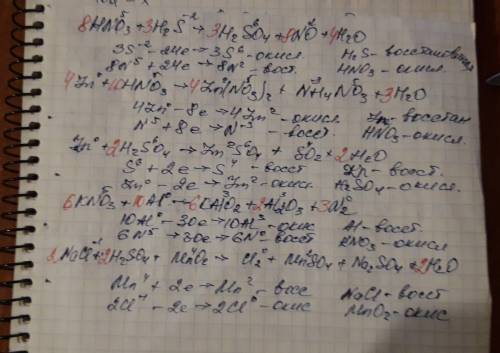 8HNO₃ + 3H₂S⁻² → 3H₂SO₄ + 8NO + 4H₂O
3S⁻² - 24e → 3S⁶ - окисл. H₂S - восстановитель
8N⁵ + 24e → 8N² - вост. HNO₃ - окисл.
4Zn⁰ + 10HNO₃ → 4Zn(NO₃)₂ + NH₄NO₃ + 3H₂O
4Zn⁰ - 8e → 4Zn² - окисл. Zn - восстан
N⁵ + 8e → N⁻³ - восст. HNO₃ - окисл.
Zn⁰ + 2H₂SO₄ → Zn²S⁶O₄ + SO₂ + 2H₂O
S⁶ + 2e → S⁴ - восст Zn - восст.
Zn⁰ - 2e → Zn² - окисл. H₂SO₄ - окисл.
6KNO₃ + 10Al⁰ → 6KAlO₂ + 2Al₂O₃ + 3N₂⁰
10Al⁰ - 30e → 10Al³ - окис Al - восст.
6N⁵ + 30e → 6N⁰ - восст KNO₃ - окисл.
2NaCl⁻¹ + 2H₂SO₄ + MnO₂ → Cl₂ + MnSO₄ + Na₂SO₄ + 2H₂O
Mn⁴ + 2e → Mn² - восс NaCl - восст
2Cl⁻¹ - 2e → 2Cl⁰ - окис MnO₂ - окис